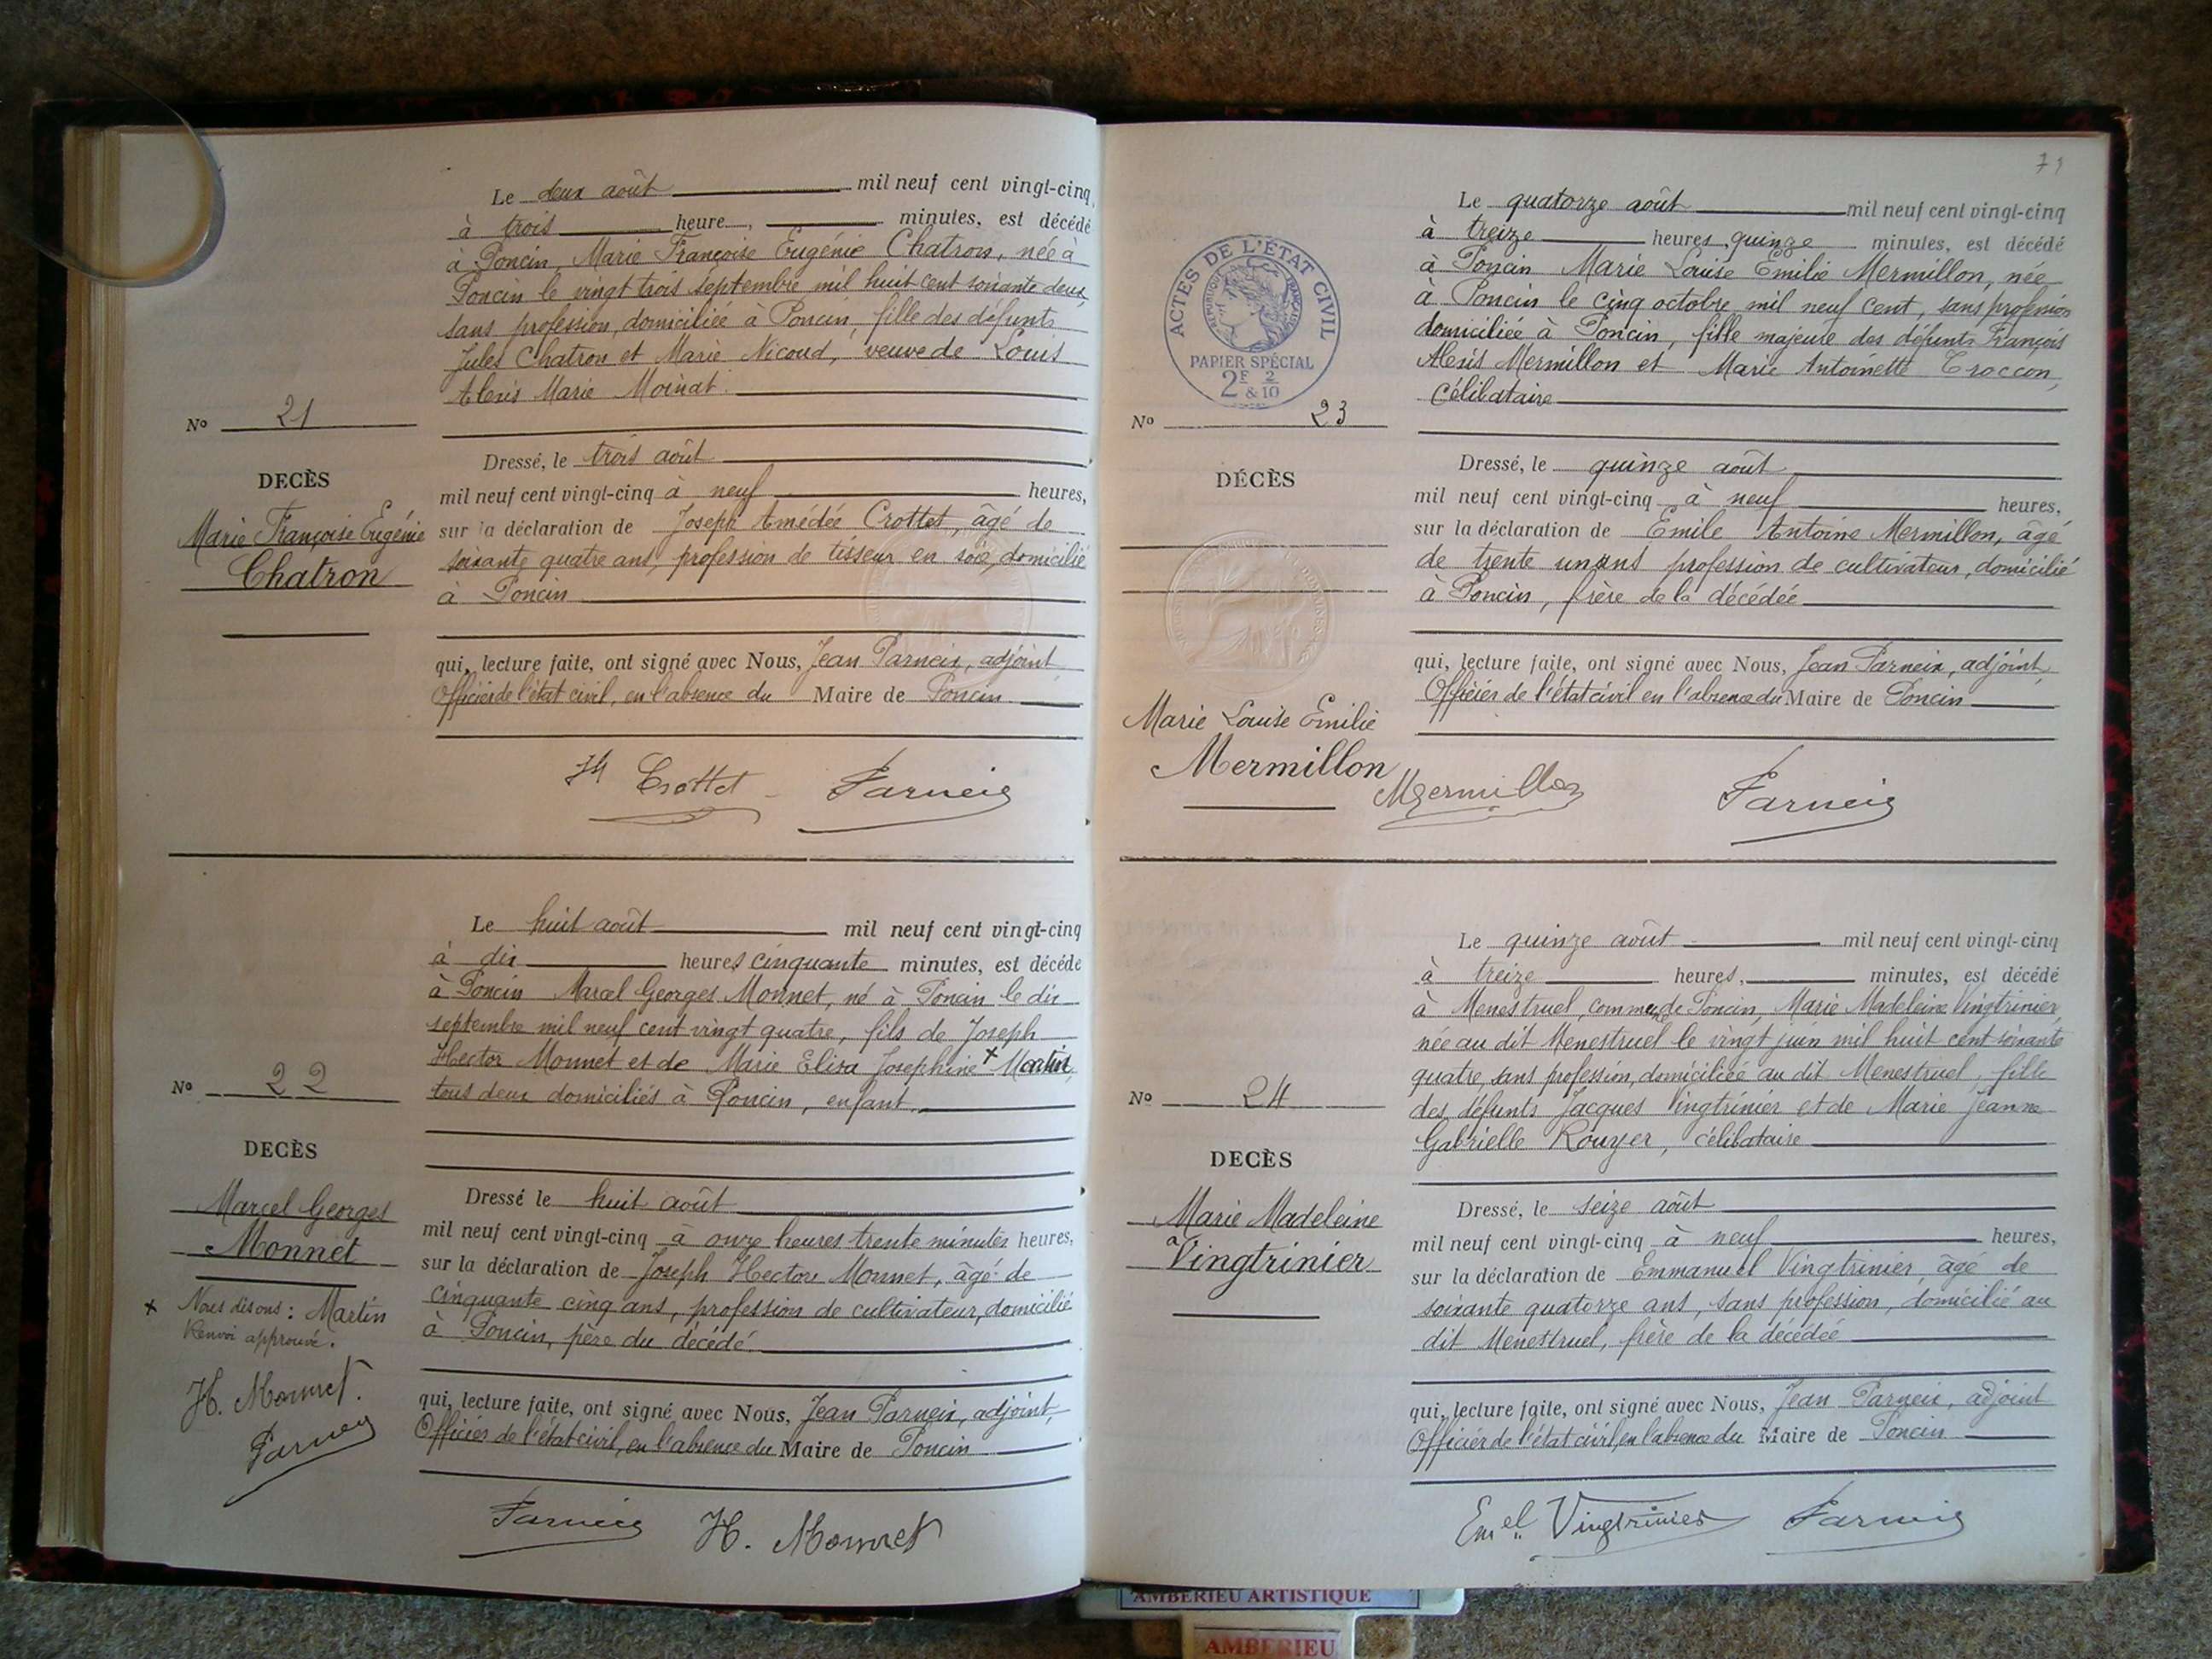 Le deux août mil neuf cent vingt-cinq,
à trois heure, minutes, est décédé
à Poncin, Marie Françoise Eugénie Chatron, née à
Poncin le vingt trois septembre mil huit cent soixante deux,
sans profession, domiciliée à Poncin, fille des défunts
Jules Chatron et Marie Nicoud, veuve de Louis
Alexis Marie Moinat.
No 21
DECÈS
Marie Françoise Eugénie
Chatron
Dressé, le trois août
mil neuf cent vingt-cinq à neuf heures,
sur la déclaration de Joseph Amédée Crottet, âgé de
soixante quatre ans, profession de tisseur en soie, domicilié
à Poncin
qui, lecture faite, ont signé avec Nous, Jean Parneix, adjoint,
Officier de l'état civil, en l'absence du Maire de Poncin
Jh Crottet Parneix
Le huit août mil neuf cent vingt-cinq
à dix heures cinquante minutes, est décédé
à Poncin Marcel Georges Monnet, né à Poncin le dix
septembre mil neuf cent vingt quatre, fils de Joseph
Hector Monnet et de Marie Elisa Josephine x Martin
tous deux domiciliés à Poncin, enfant
No 22
DECÈS
Marcel Georges
Monnet
x Nous disons : Martin
Renvoi approuvé.
H. Monnet.
Parneix
Dressé le huit août
mil neuf cent vingt-cinq à onze heures trente minutes heures,
sur la déclaration de Joseph Hector Monnet, âgé de
cinquante cinq ans, profession de cultivateur, domicilié
à Poncin, père du décédé.
qui, lecture faite, ont signé avec Nous, Jean Parneix, adjoint,
Officier de l'état civil, en l'absence du Maire de Poncin
Parneix H. Monnet
71
ACTES DE L'ÉTAT CIVIL
RÉPUBLIQUE FRANÇAISE
PAPIER SPÉCIAL
2F & 2/10
Le quatorze août mil neuf cent vingt-cinq
à treize heures quinze minutes, est décédé
à Poncin Marie Louise Emilie Mermillon, née
à Poncin le cinq octobre mil neuf cent, sans profession
domiciliée à Poncin, fille majeure des défunts François
Alexis Mermillon et Marie Antoinette Croccon,
célibataire
No 23
DÉCÈS
Marie Louise Emilie
Mermillon
Dressé, le quinze août
mil neuf cent vingt-cinq à neuf heures,
sur la déclaration de Emile Antoine Mermillon, âgé
de trente un ans profession de cultivateur, domicilié
à Poncin, frère de la décédée
qui, lecture faite, ont signé avec Nous, Jean Parneix, adjoint,
Officier de l'état civil en l'absence du Maire de Poncin
Mermillon Parneix
Le quinze août mil neuf cent vingt-cinq
à treize heures, minutes, est décédé
à Menestruel, commune de Poncin, Marie Madeleine Vingtrinier,
née au dit Menestruel le vingt juin mil huit cent soixante
quatre, sans profession, domiciliée au dit Menestruel, fille
des défunts Jacques Vingtrinier et de Marie Jeanne
Gabrielle Rouyer, célibataire
No 24
DECÈS
Marie Madeleine
Vingtrinier
Dressé, le seize août
mil neuf cent vingt-cinq à neuf heures,
sur la déclaration de Emmanuel Vingtrinier, âgé de
soixante quatorze ans, sans profession, domicilié au
dit Menestruel, frère de la décédée
qui, lecture faite, ont signé avec Nous, Jean Parneix, adjoint
Officier de l'état civil, en l'absence du Maire de Poncin
Emel Vingtrinier Parneix
AMBERIEU ARTISTIQUE
AMBERIEU